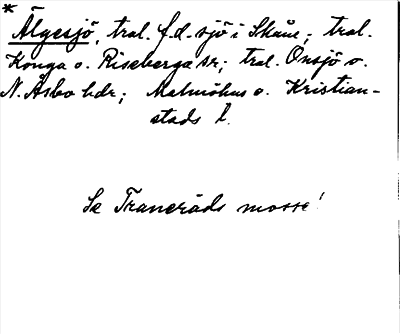 * Älgesjö, tral. f.d. sjö i Skåne; tral.
Konga o. Riseberga sr; tral. Onsjö o.
N. Åsbo hdr; Malmöhus o. Kristian-
stads l.
Se Traneröds mosse!